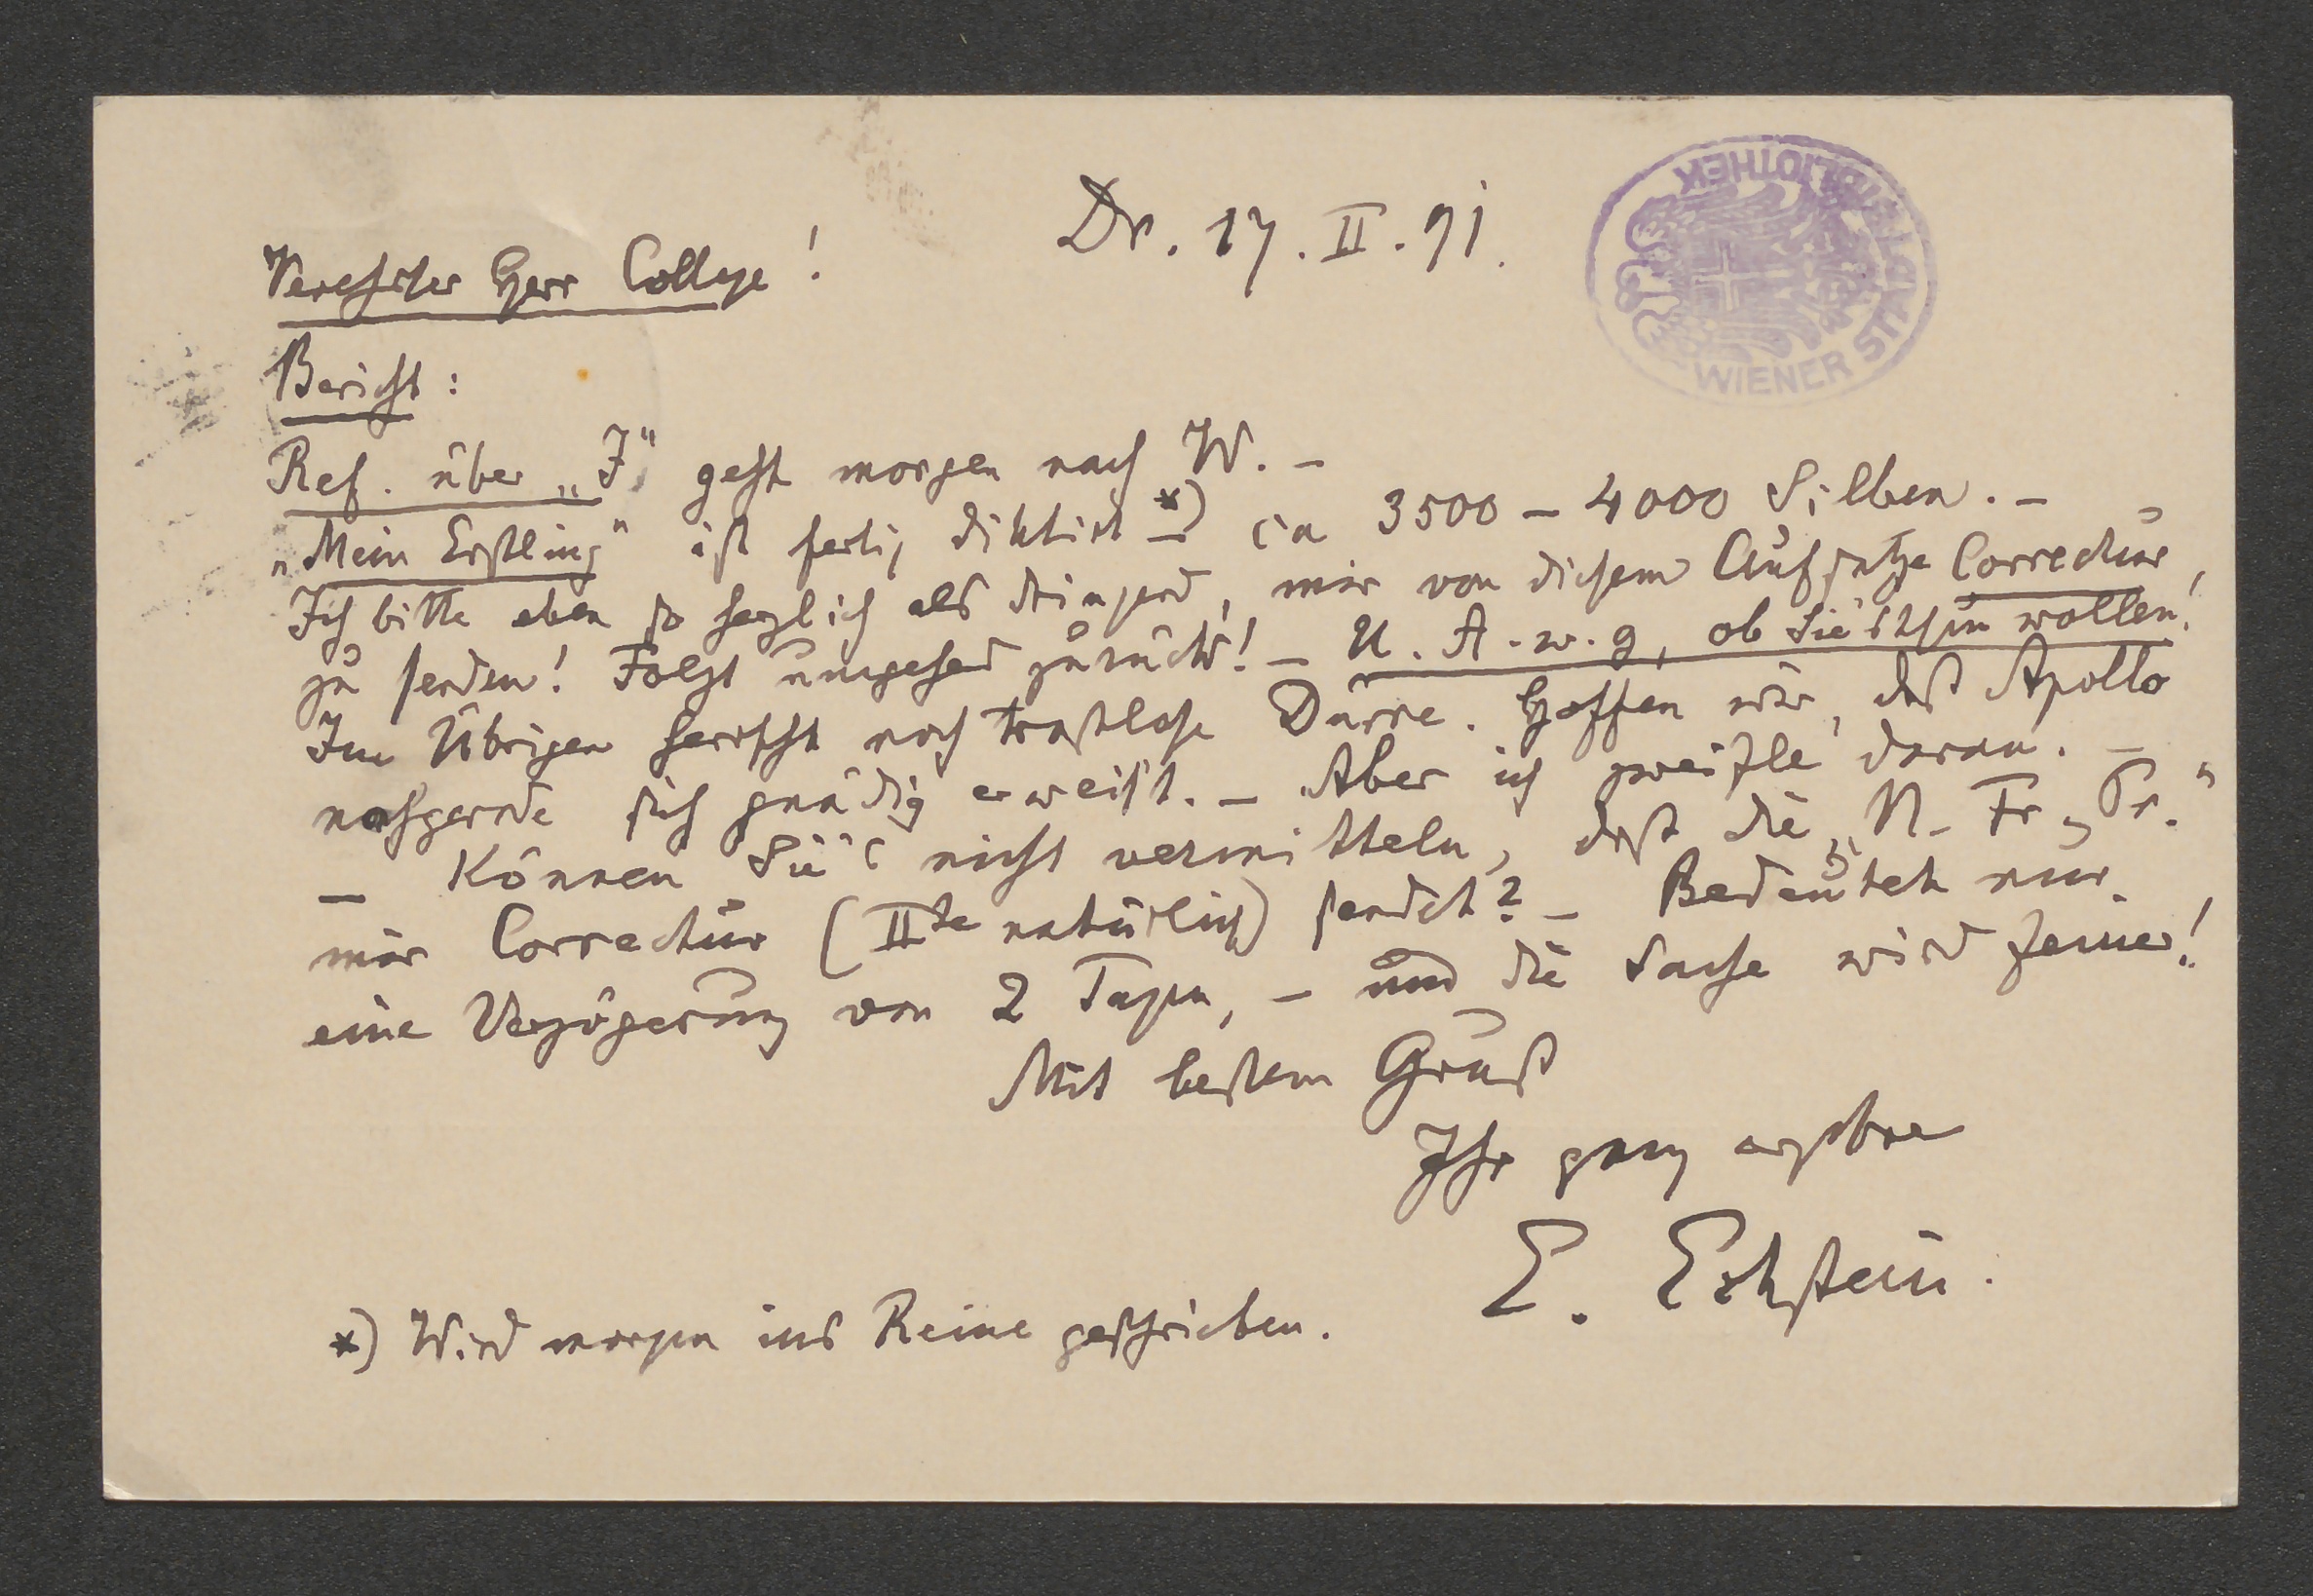 Dr. 17. II. 91.
Verehrter Herr College!
Bericht:
Ref. über „J“ geht morgen nach W. –
„Mein Erstling“ ist fertig diktirt *) – ca 3500 – 4000 Silben. –
Ich bitte eben so herzlich als dringend, mir von diesem Aufsatze Correctur
zu senden! Folgt umgehend zurück! – U. A. w. g, ob Sie's thun wollen!
Im Übrigen herrscht noch trostlose Dürre. Hoffen wir, daß Apollo
nachgerade sich gnädig erweist. – Aber ich zweifle daran. –
– Können Sie's nicht vermitteln, daß die „N. Fr. Pr.“
mir Correctur (IIte natürlich) sendet? – Bedeutet nur
eine Verzögerung von 2 Tagen, – und die Sache wird feiner!
Mit bestem Gruß
Ihr ganz ergebener
E. Eckstein.
*) Wird morgen ins Reine geschrieben.
WIENER STADTBIBLIOTHEK